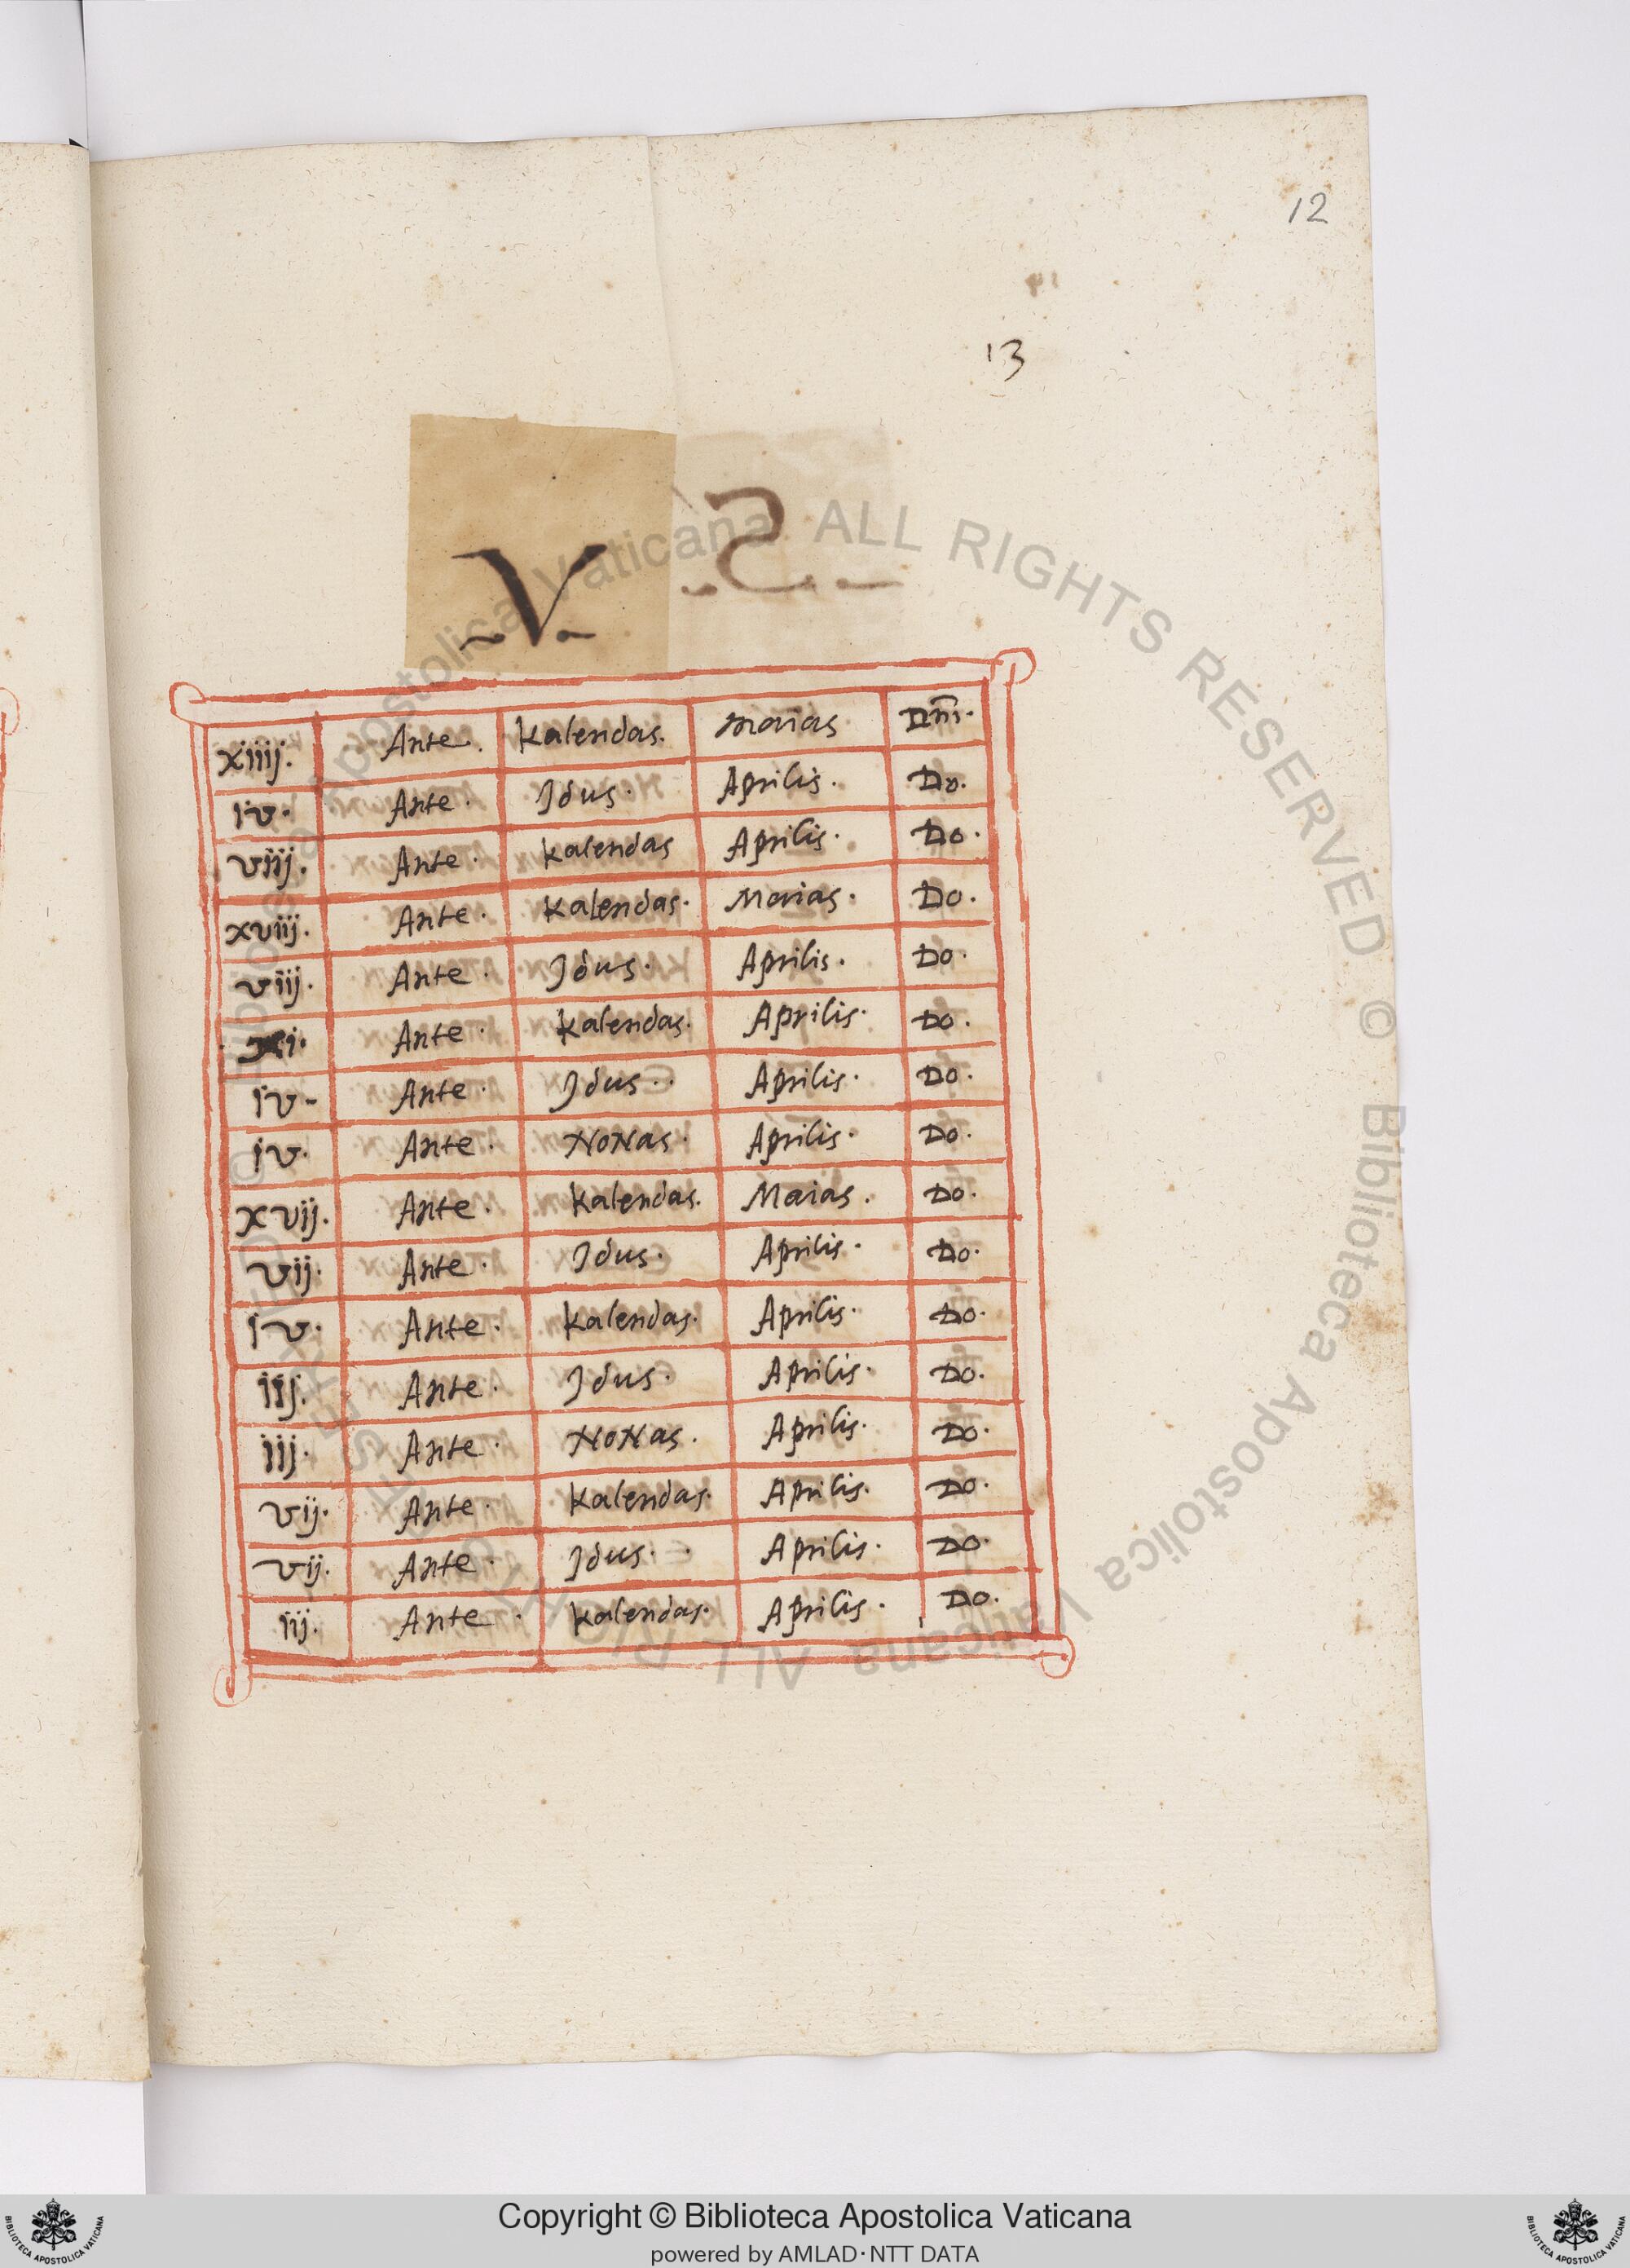 12
13
V
xiiij. Ante. Kalendas. Maias Dñi.
iv. Ante. Idus. Aprilis. Do.
viij. Ante. Kalendas Aprilis. Do.
xviij. Ante. Kalendas. Maias. Do.
viij. Ante. Idus. Aprilis. Do.
xi. Ante. Kalendas. Aprilis. Do.
iv. Ante. Idus. Aprilis. Do.
iv. Ante. Nonas. Aprilis. Do.
xvij. Ante. Kalendas. Maias. Do.
vij. Ante. Idus. Aprilis. Do.
iv. Ante. Kalendas. Aprilis. Do.
iij. Ante. Idus. Aprilis. Do.
iij. Ante. Nonas. Aprilis. Do.
vij. Ante. Kalendas. Aprilis. Do.
vij. Ante. Idus. Aprilis. Do.
iij. Ante. Kalendas. Aprilis. Do.
© Biblioteca Apostolica Vaticana ALL RIGHTS RESERVED © Biblioteca Apostolica Vaticana ALL RIGHTS RESERVED
Copyright © Biblioteca Apostolica Vaticana
powered by AMLAD·NTT DATA
BIBLIOTECA APOSTOLICA VATICANA
BIBLIOTECA APOSTOLICA VATICANA